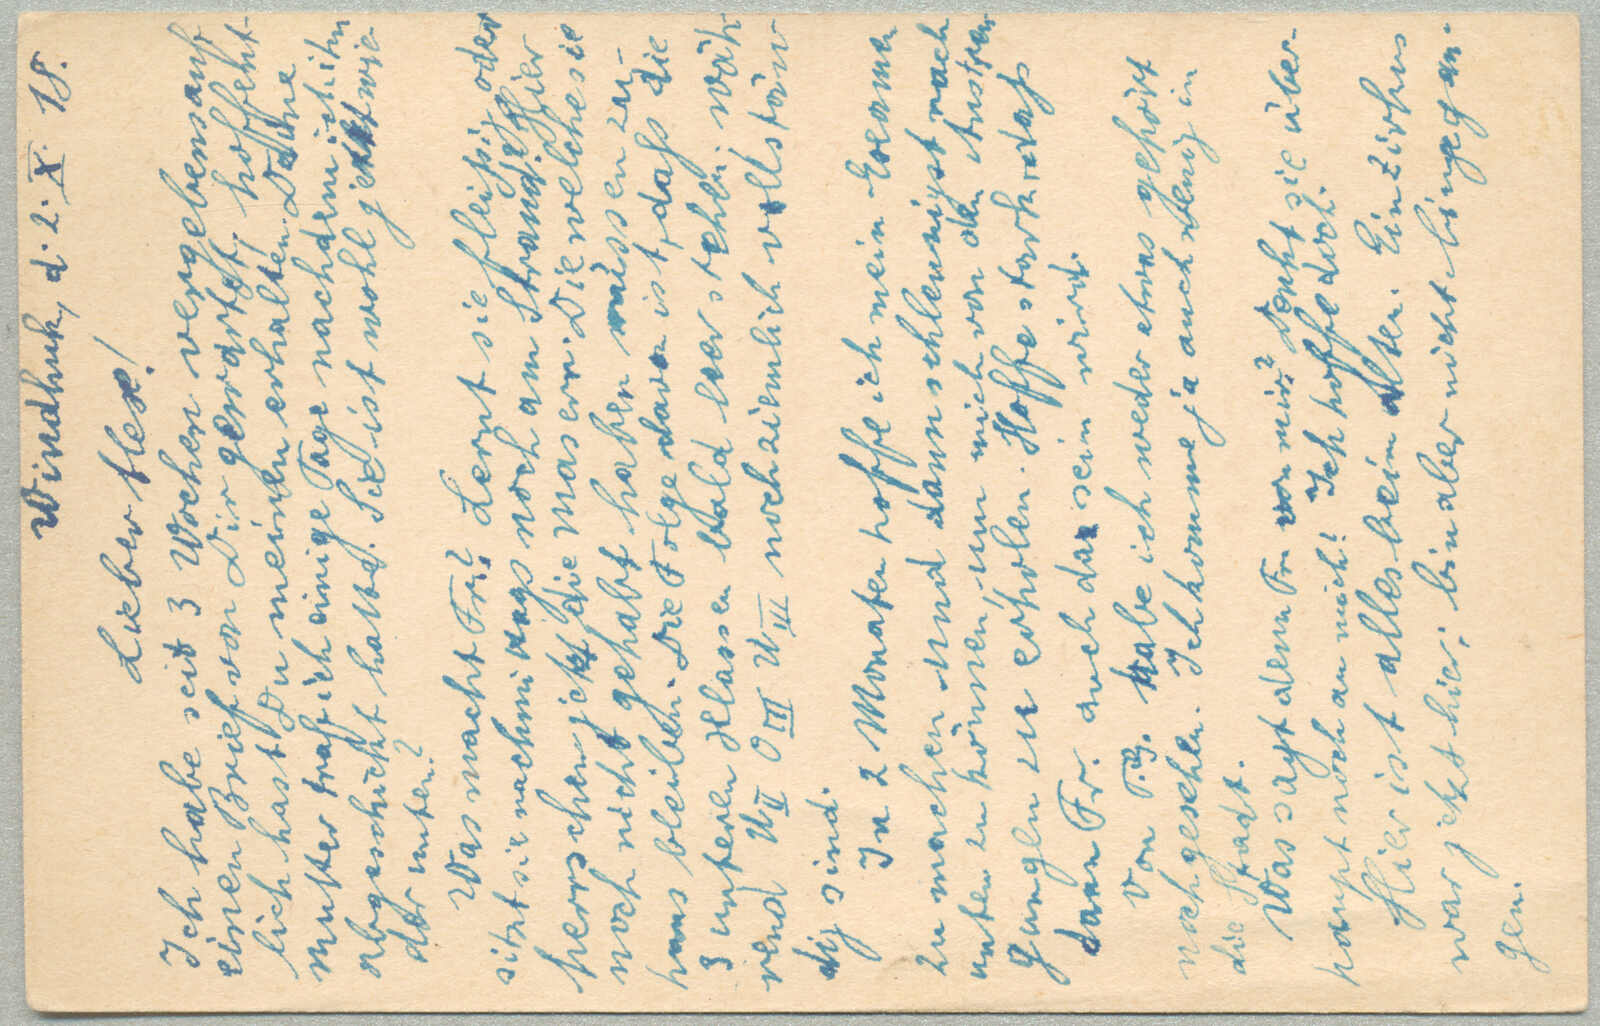 Windhuk, d. 2. X. 18.
Lieber Alex!
Ich habe seit 3 Wochen vergebens auf
einen Brief von Dir gewartet, hoffent-
lich hast Du meinen erhalten. Deine
Mutter traf ich einige Tage nachdem ich ihn
abgeschickt hatte. Sie ist wohl jetzt wie-
der unten?
Was macht Fr.? Lernt sie fleissig oder
sitzt sie nachmittags noch am Strand? Hier
herrschen jetzt die Masern. Die welche sie
noch nicht gehabt haben müssen zu-
haus bleiben. Die Folge davon ist, dass die
3 unteren Klassen bald leer stehn, wäh-
rend U II O III U III noch ziemlich vollstän-
dig sind.
In 2 Monaten hoffe ich mein Examen
zu machen und dann schleunigst nach
unten zu können, um mich von den Anstren-
gungen zu erholen. Hoffe stark, dass
dann Fr. auch da sein wird.
Von T. B. habe ich weder etwas gehört
noch gesehen. Ich komme ja auch wenig in
die Stadt.
Was sagt denn Fr. von mir? Denkt sie über-
haupt noch an mich? Ich hoffe doch.
Hier ist alles beim Alten. Ein Zirkus
war jetzt hier; bin aber nicht hingegan-
gen.